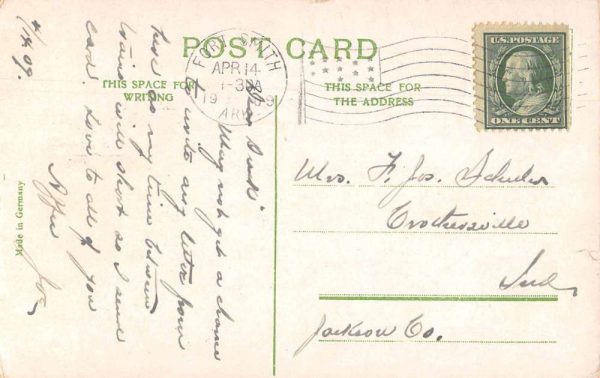 POST CARD
THIS SPACE FOR
WRITING
THIS SPACE FOR
THE ADDRESS
FORT SMITH
APR 14
1909
ARK.
U.S. POSTAGE
ONE CENT
Mrs. F. Jos. Schuler
Crothersville
Ind.
Jackson Co.
4/14 09.
May not get a chance
to write any letter from
here as my time between
trains will short so I send
card. Love to all of you
Joe
Made in Germany